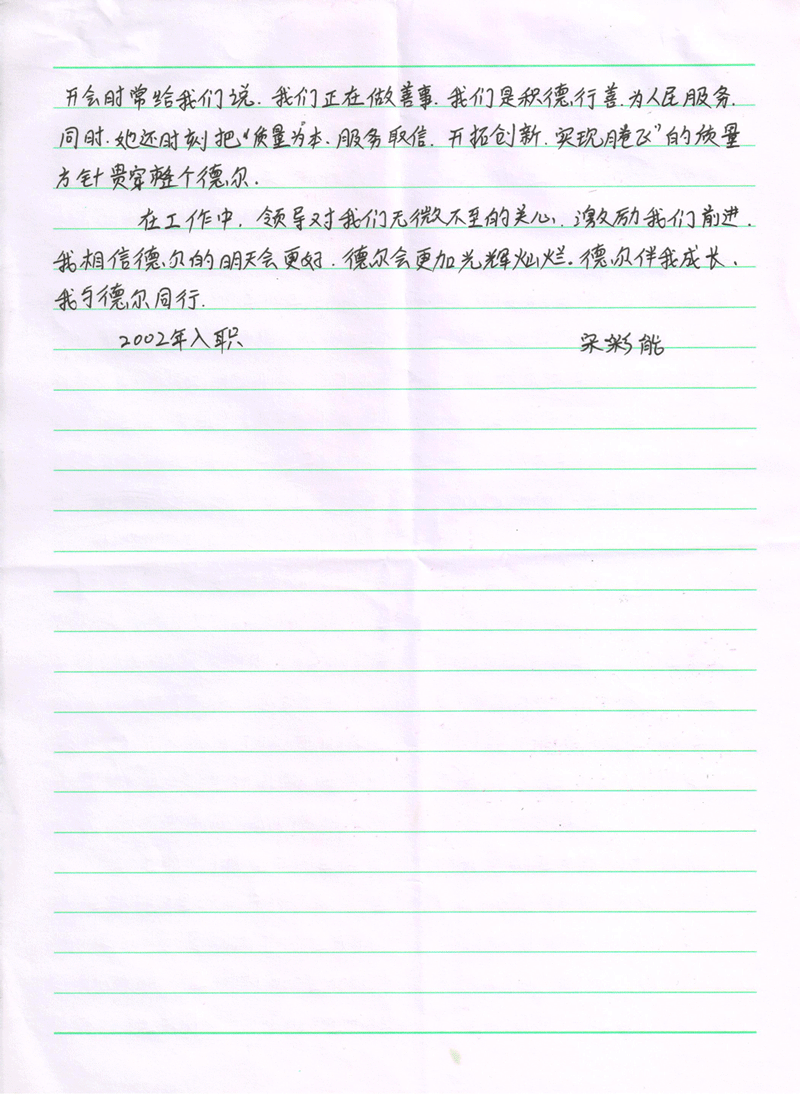 开会时常给我们说.我们正在做善事.我们是积德行善.为人民服务.
同时.她还时刻把“质量为本.服务取信.开拓创新.实现腾飞”的质量
方针贯穿整个德尔.
在工作中.领导对我们无微不至的关心.激励我们前进.
我相信德尔的明天会更好.德尔会更加光辉灿烂。德尔伴我成长.
我与德尔同行.
2002年入职 宋彩能